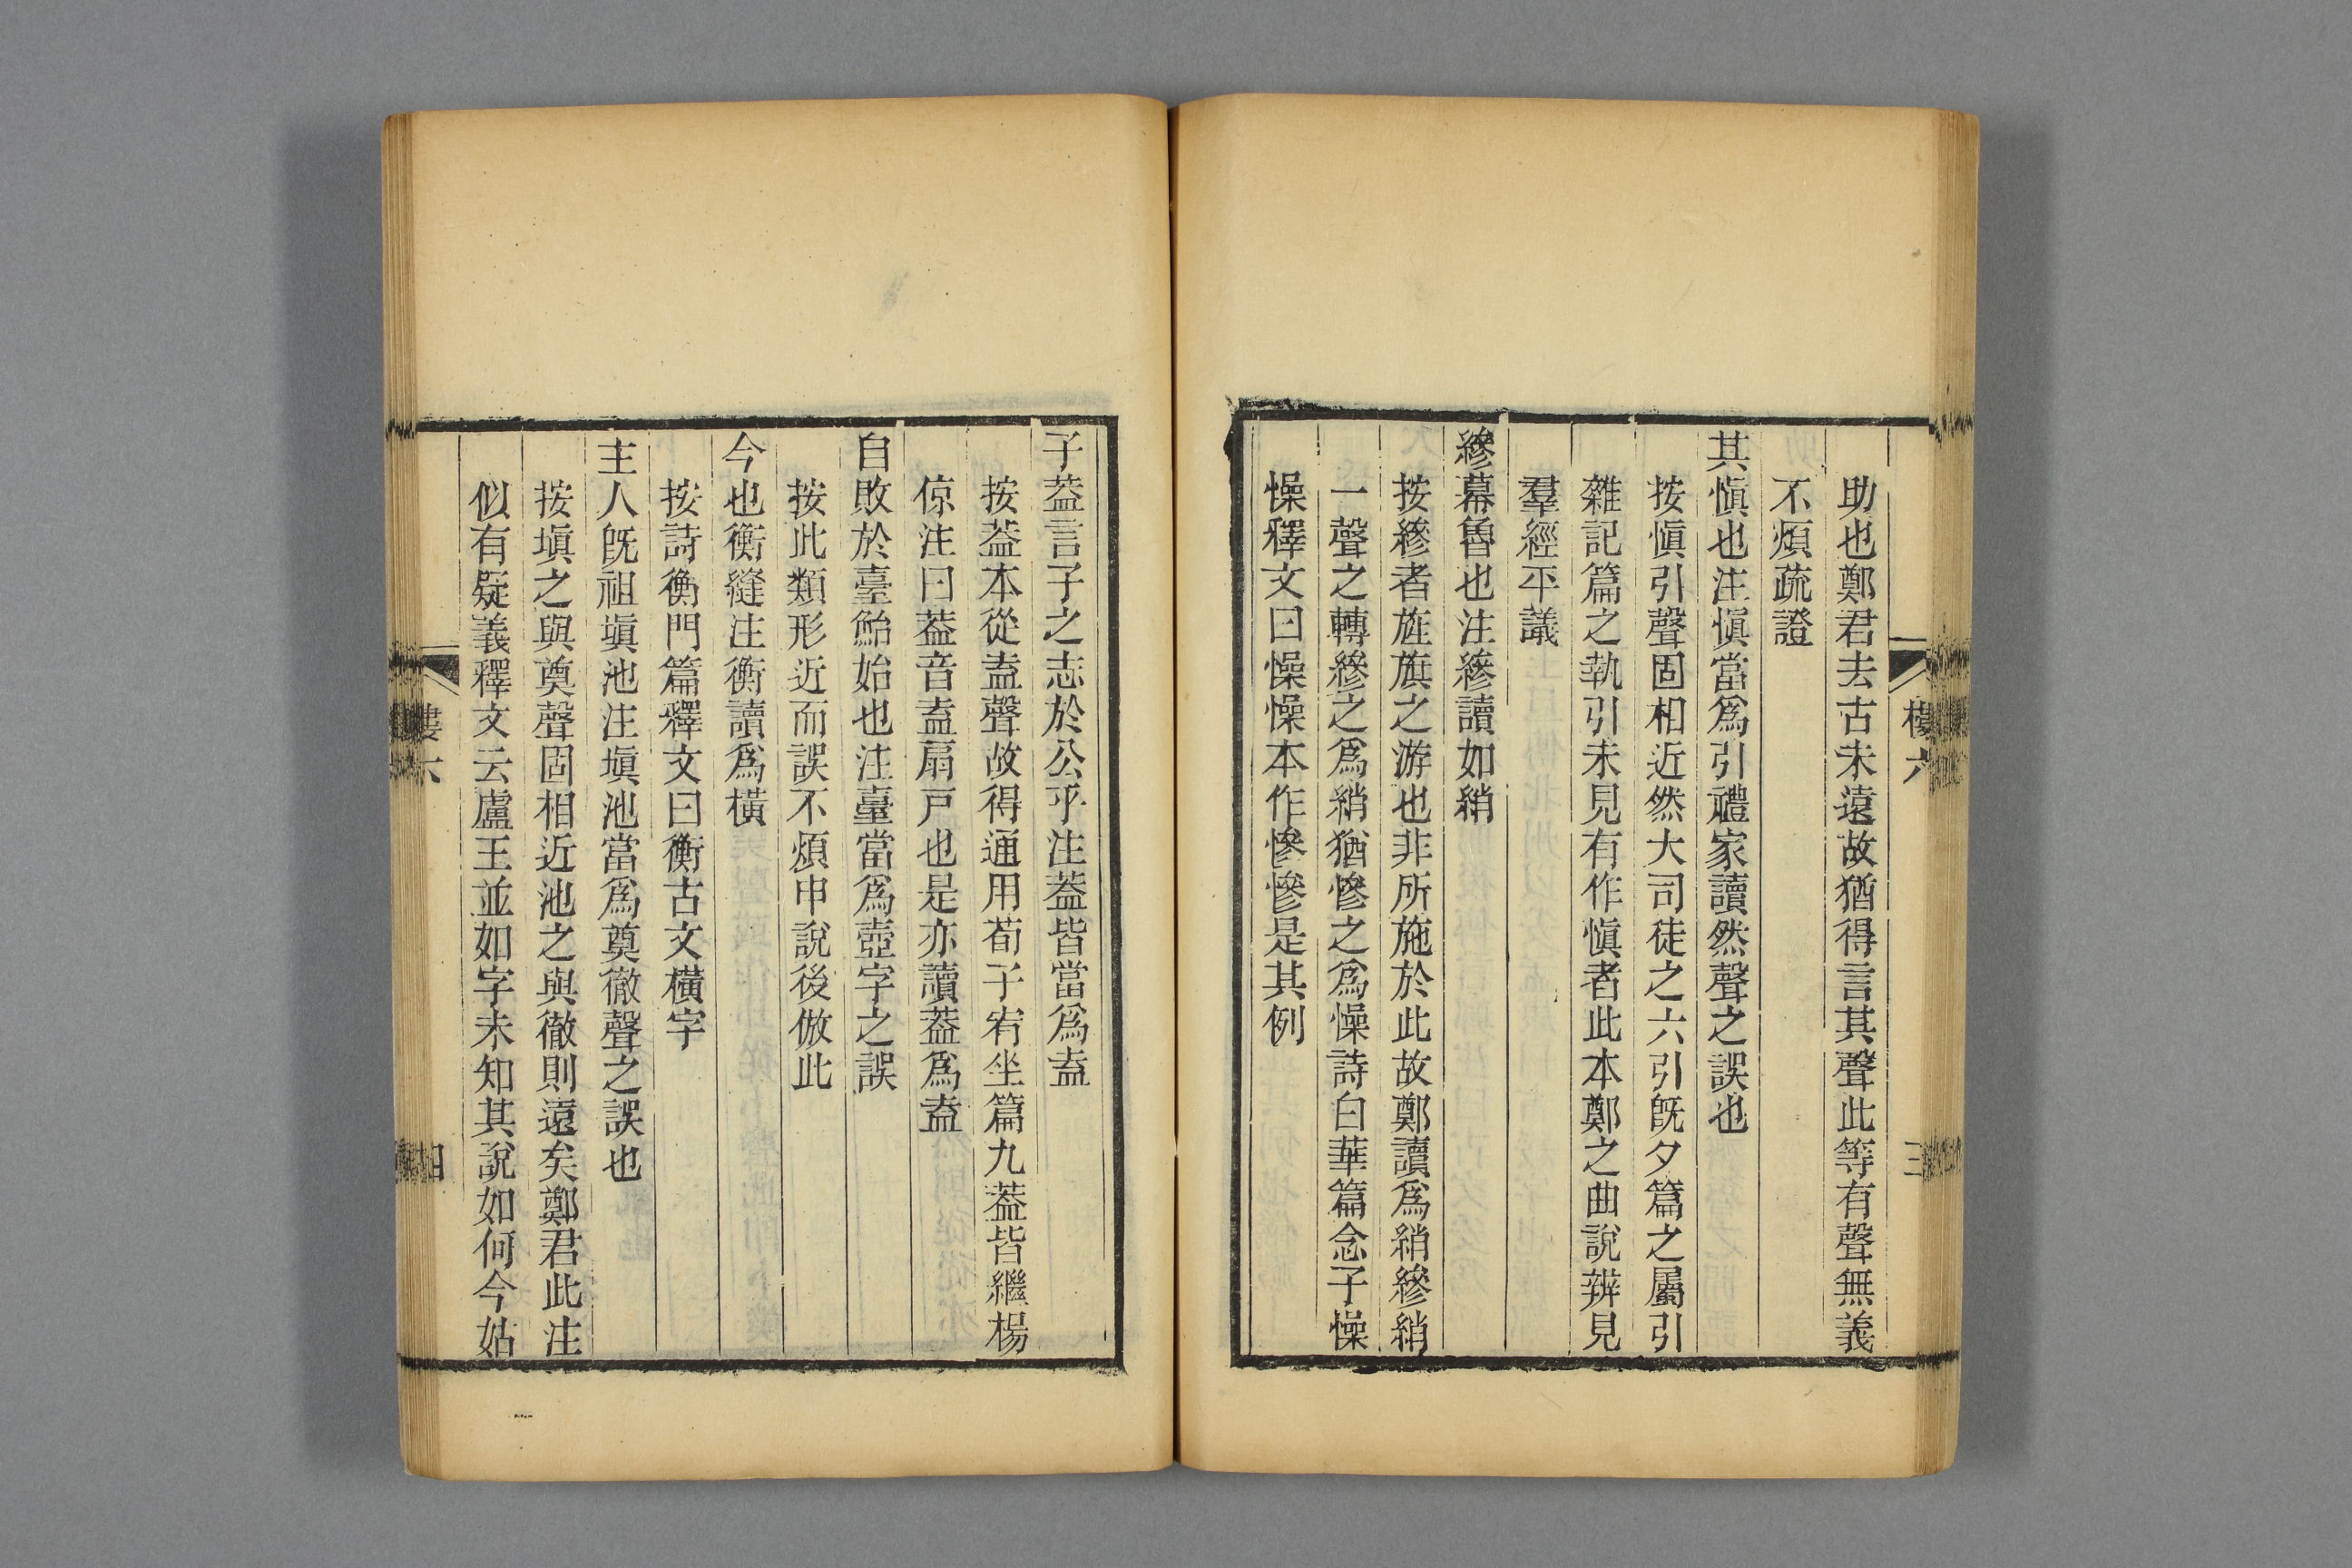 助也鄭君去古未遠故猶得言其聲此等有聲無義
不煩疏證
其愼也注愼當爲引禮家讀然聲之誤也
按愼引聲固相近然大司徒之六引旣夕篇之屬引
雜記篇之執引未見有作愼者此本鄭之曲說辨見
羣經平議
縿幕魯也注縿讀如綃
按縿者旌旗之游也非所施於此故鄭讀爲綃縿綃
一聲之轉縿之爲綃猶慘之爲懆詩白華篇念子懆
懆釋文曰懆懆本作慘慘是其例
樓六
三
子葢言子之志於公乎注葢皆當爲盍
按葢本從盍聲故得通用荀子宥坐篇九葢皆繼楊
倞注曰葢音盍扇戸也是亦讀葢爲盍
自敗於臺鮐始也注臺當爲壺字之誤
按此類形近而誤不煩申說後倣此
今也衡縫注衡讀爲橫
按詩衡門篇釋文曰衡古文橫字
主人旣祖塡池注塡池當爲奠徹聲之誤也
按塡之與奠聲固相近池之與徹則遠矣鄭君此注
似有疑義釋文云盧王並如字未知其說如何今姑
樓六
四